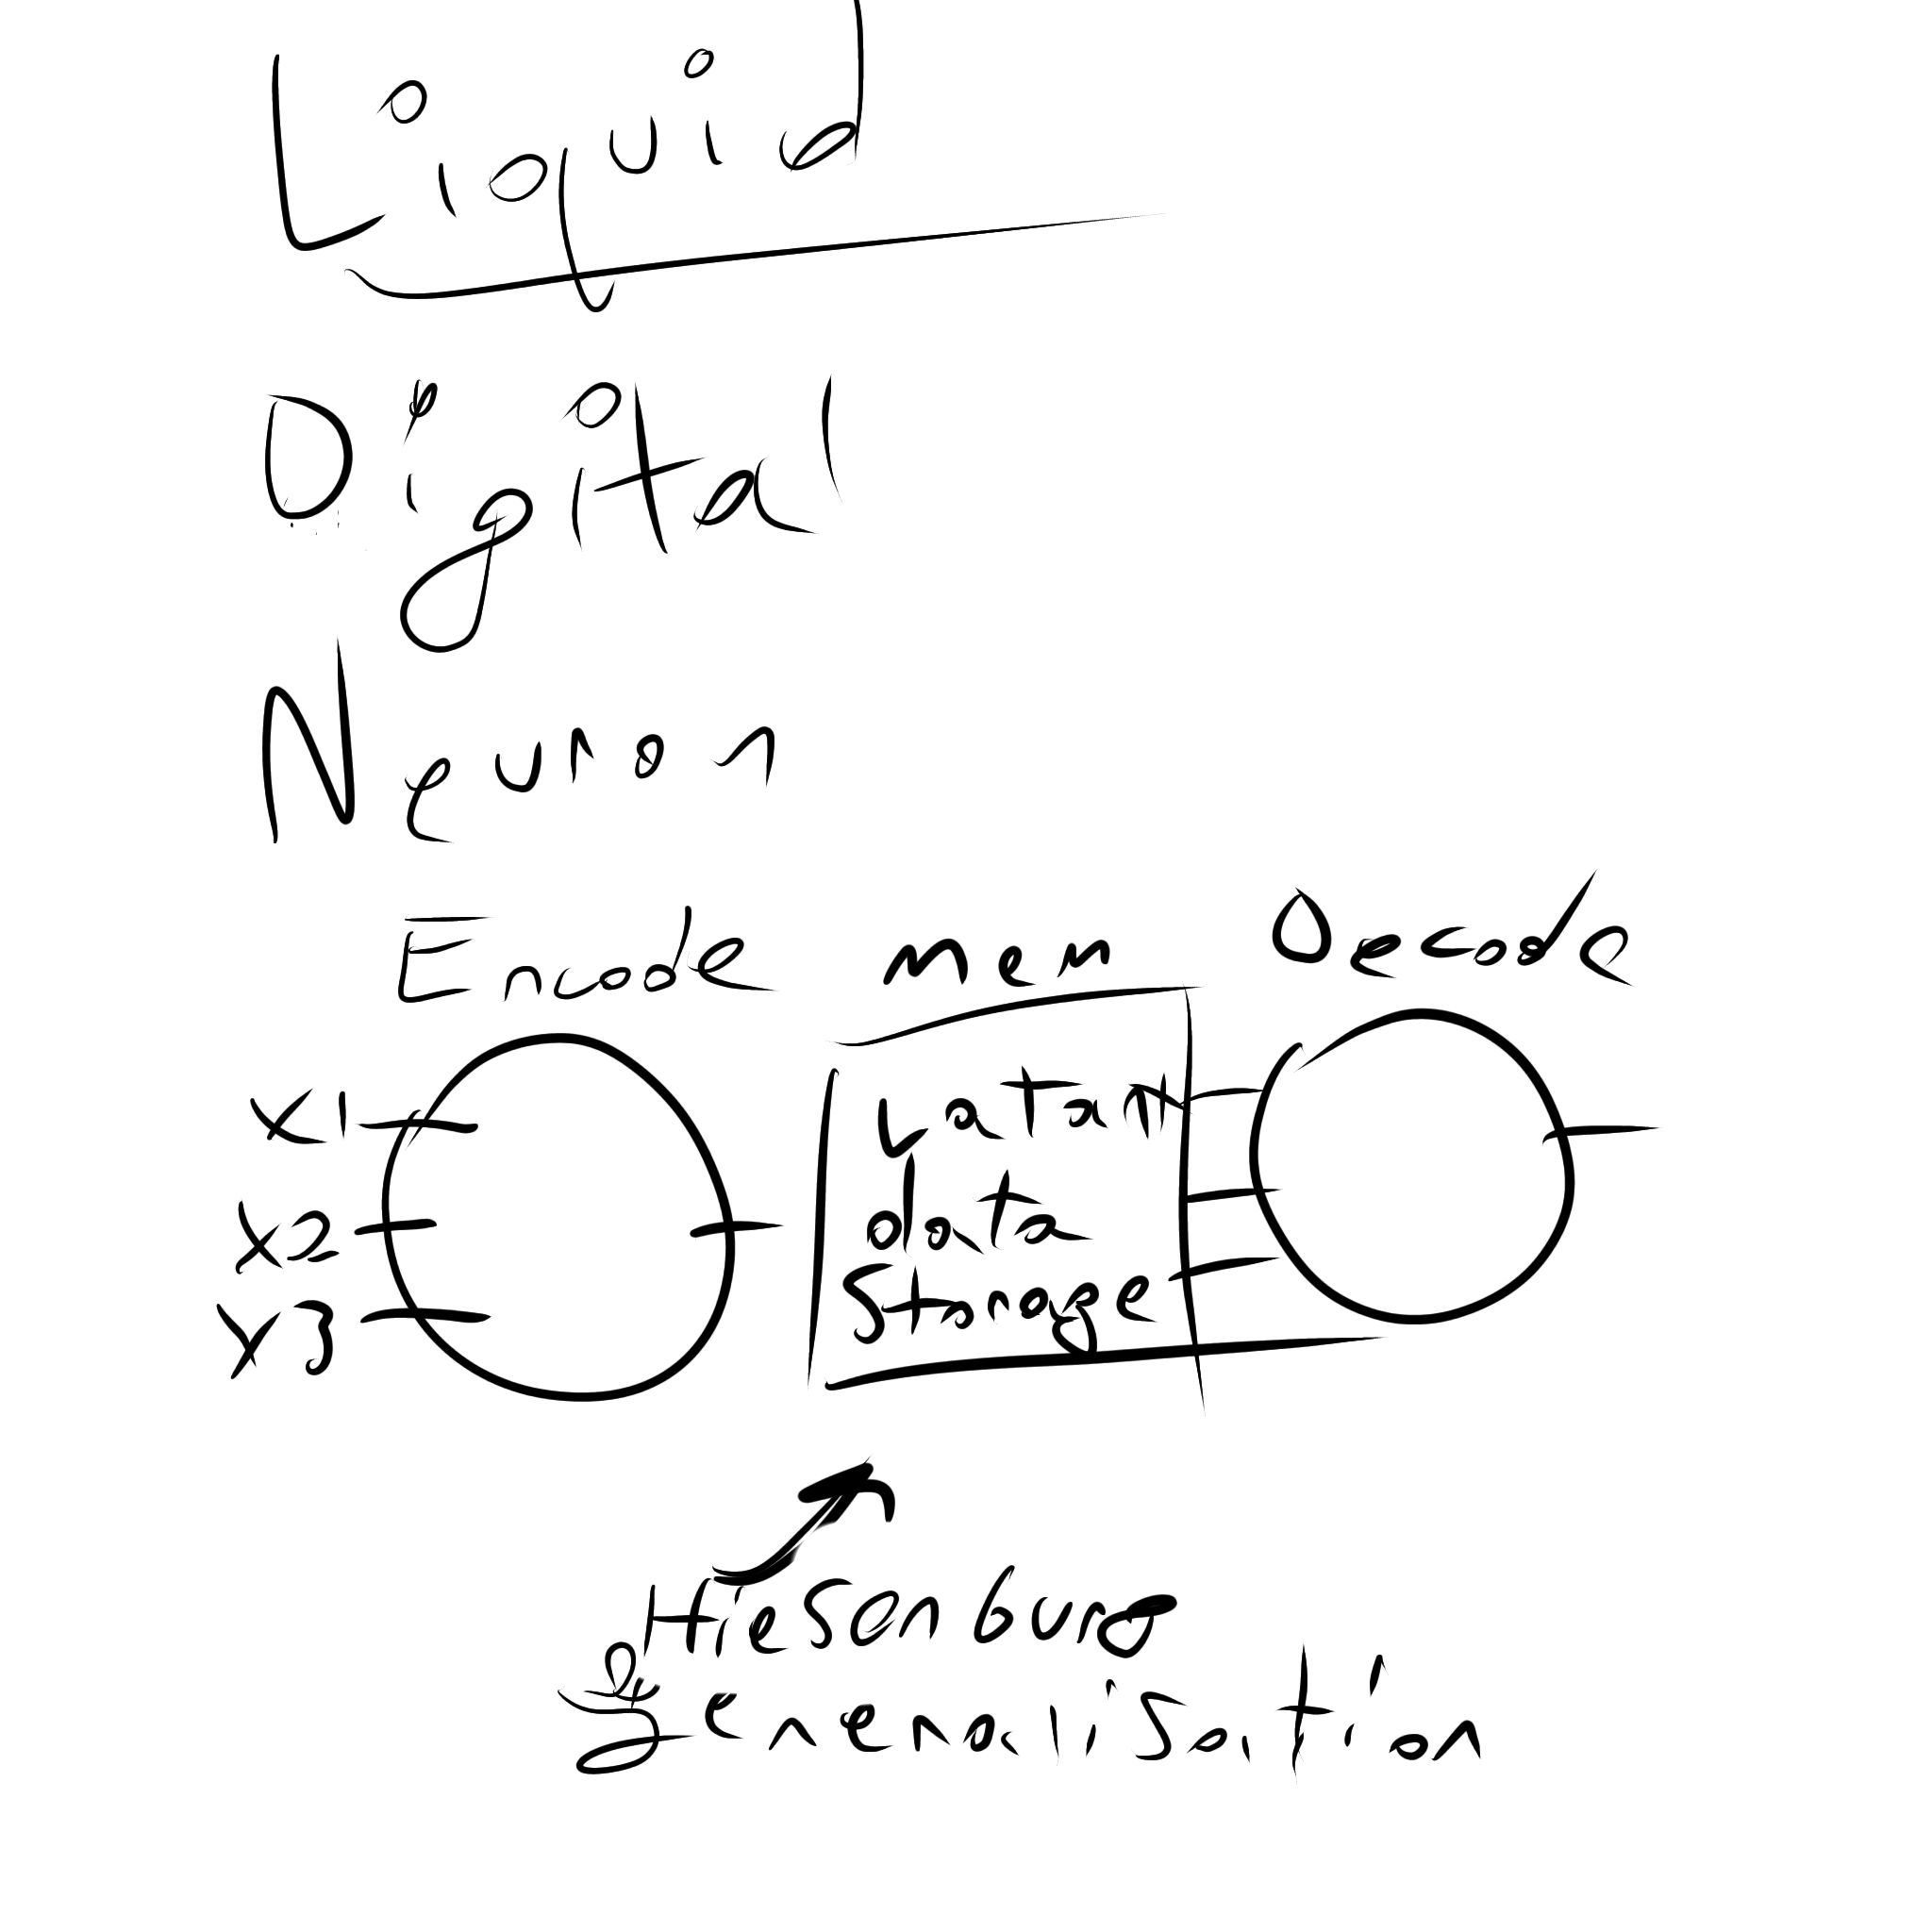 Liquid
Digital
Neuron
Encode mem Decode
x1
x2
x3
Latant
data
Storage
Hiesenburg
generalisation